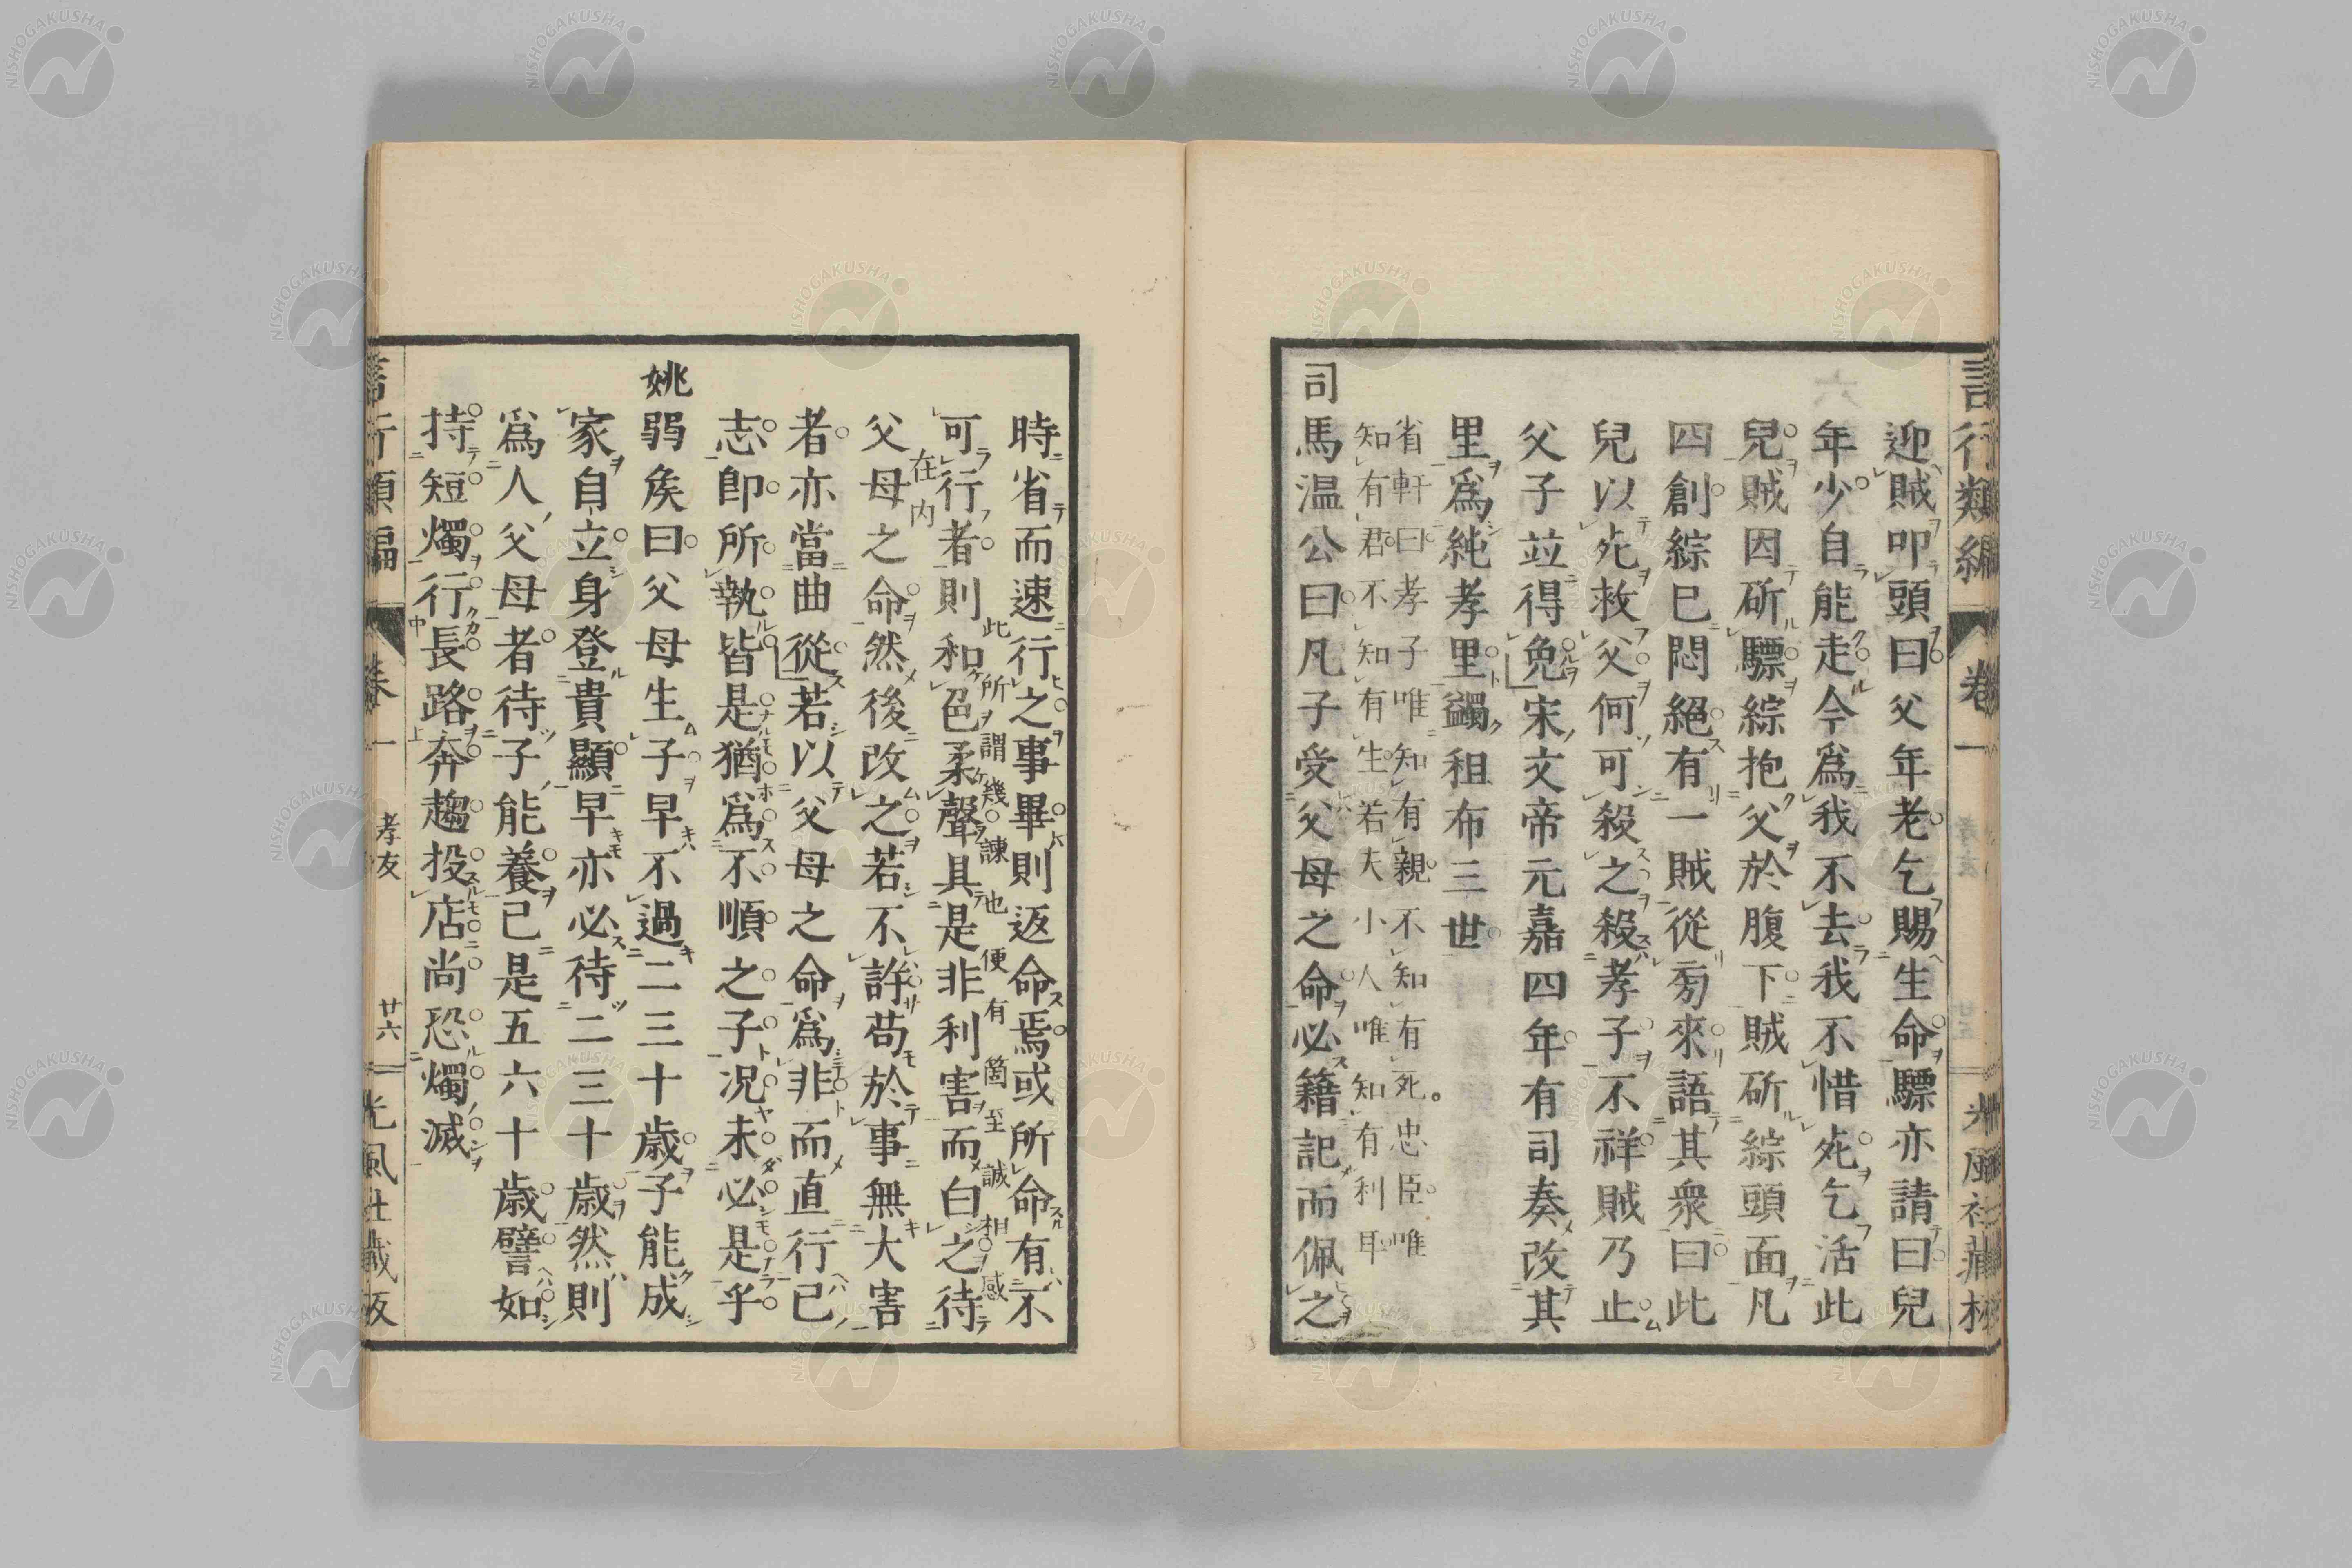 言行類編 卷一 光風社蔵板
迎賊叩頭曰父年老乞賜生命驃亦請曰兒
年少自能走今爲我不去我不惜死乞活此
兒賊因斫驃綜抱父於腹下賊斫綜頭面凡
四創綜已悶絕有一賊從旁來語其衆曰此
兒以死救父何可殺之殺孝子不祥賊乃止
父子竝得免宋文帝元嘉四年有司奏改其
里爲純孝里蠲租布三世
省軒曰孝子唯知有親不知有死忠臣唯
知有君不知有生若夫小人唯知有利耳
司馬温公曰凡子受父母之命必籍記而佩之
時省而速行之事畢則返命焉或所命有不
可行者則和色柔聲具是非利害而白之待
此所謂幾諫也便有箇至誠相感
在内
父母之命然後改之若不許苟於事無大害
者亦當曲從若以父母之命爲非而直行己
志即所執皆是猶爲不順之子況未必是乎
姚弱矦曰父母生子早不過二三十歲子能成
家自立身登貴顯早亦必待二三十歲然則
爲人父母者待子能養已是五六十歲譬如
持短燭行長路奔趨投店尚恐燭滅
言行類編 卷一 孝友 廿六 光風社蔵板
NISHOGAKUSHA